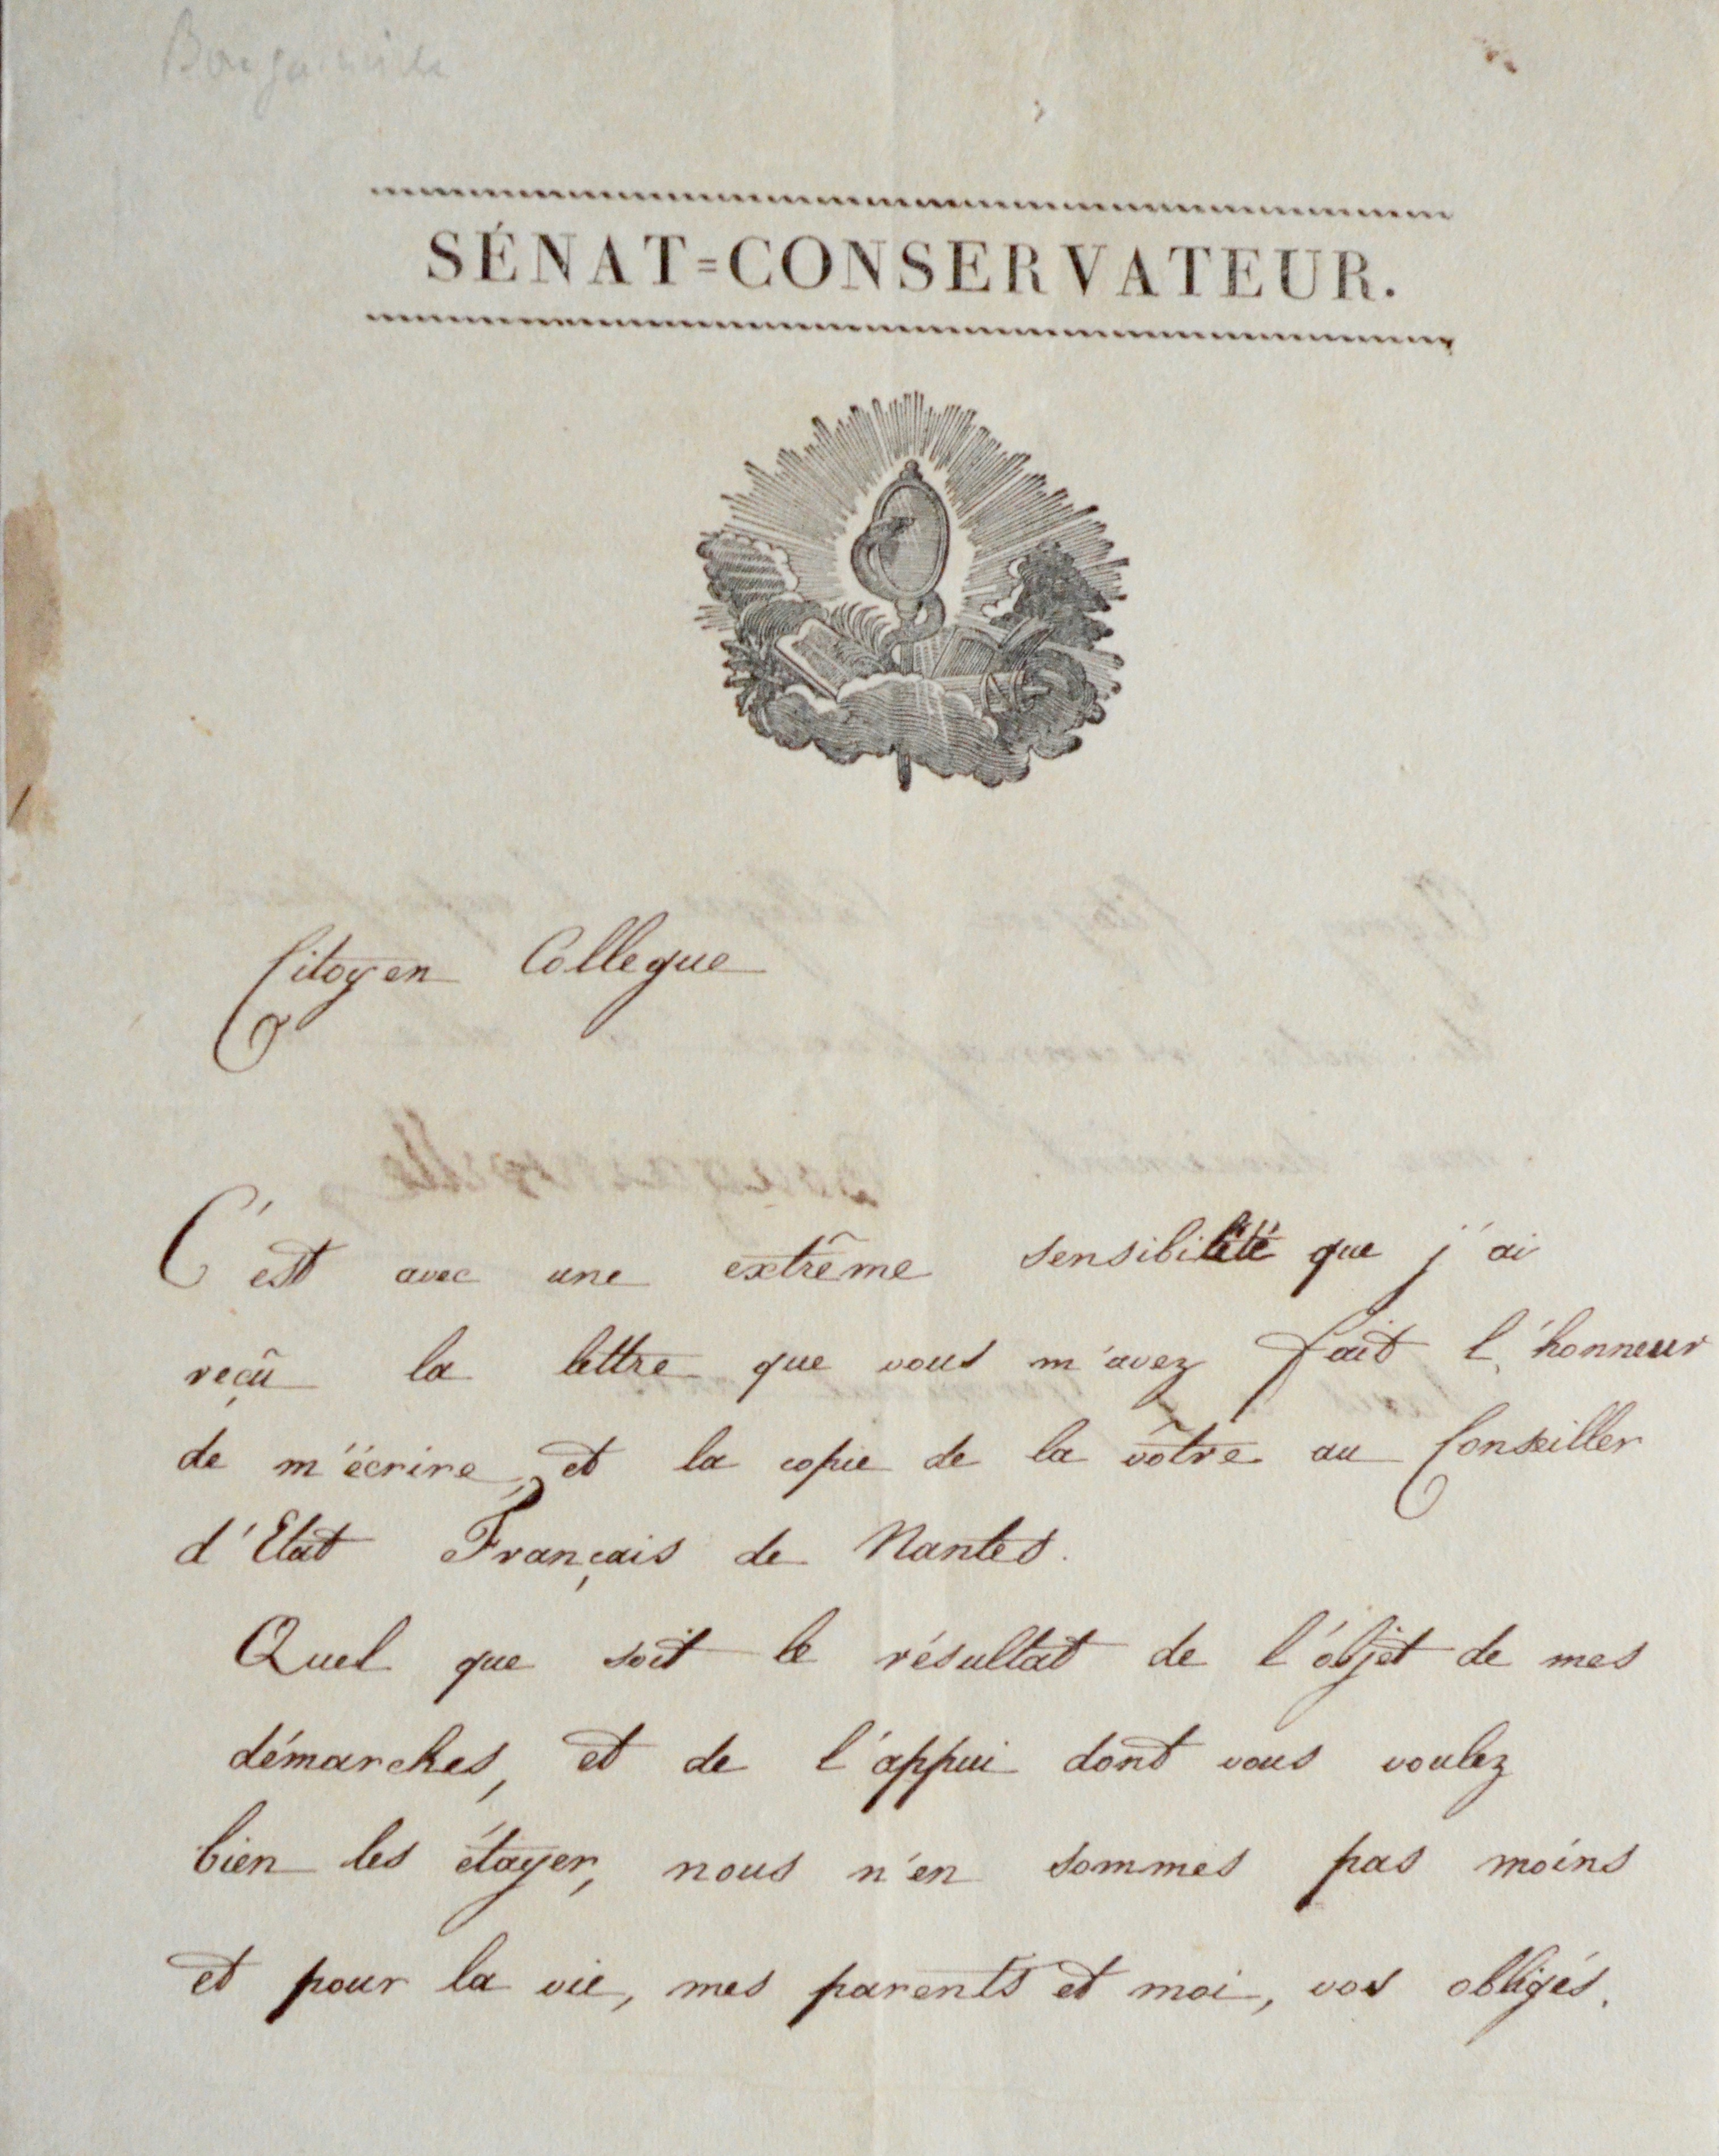 Bougainville
SÉNAT=CONSERVATEUR.
Citoyen Collegue
C'est avec une extrême sensibilité que j'ai
reçû la lettre que vous m'avez fait l'honneur
de m'écrire, et la copie de la vôtre au Conseiller
d'Etat Français de Nantes.
Quel que soit le résultat de l'objet de mes
démarches, et de l'appui dont vous voulez
bien les étayer, nous n'en sommes pas moins
et pour la vie, mes parents et moi, vos obligés.